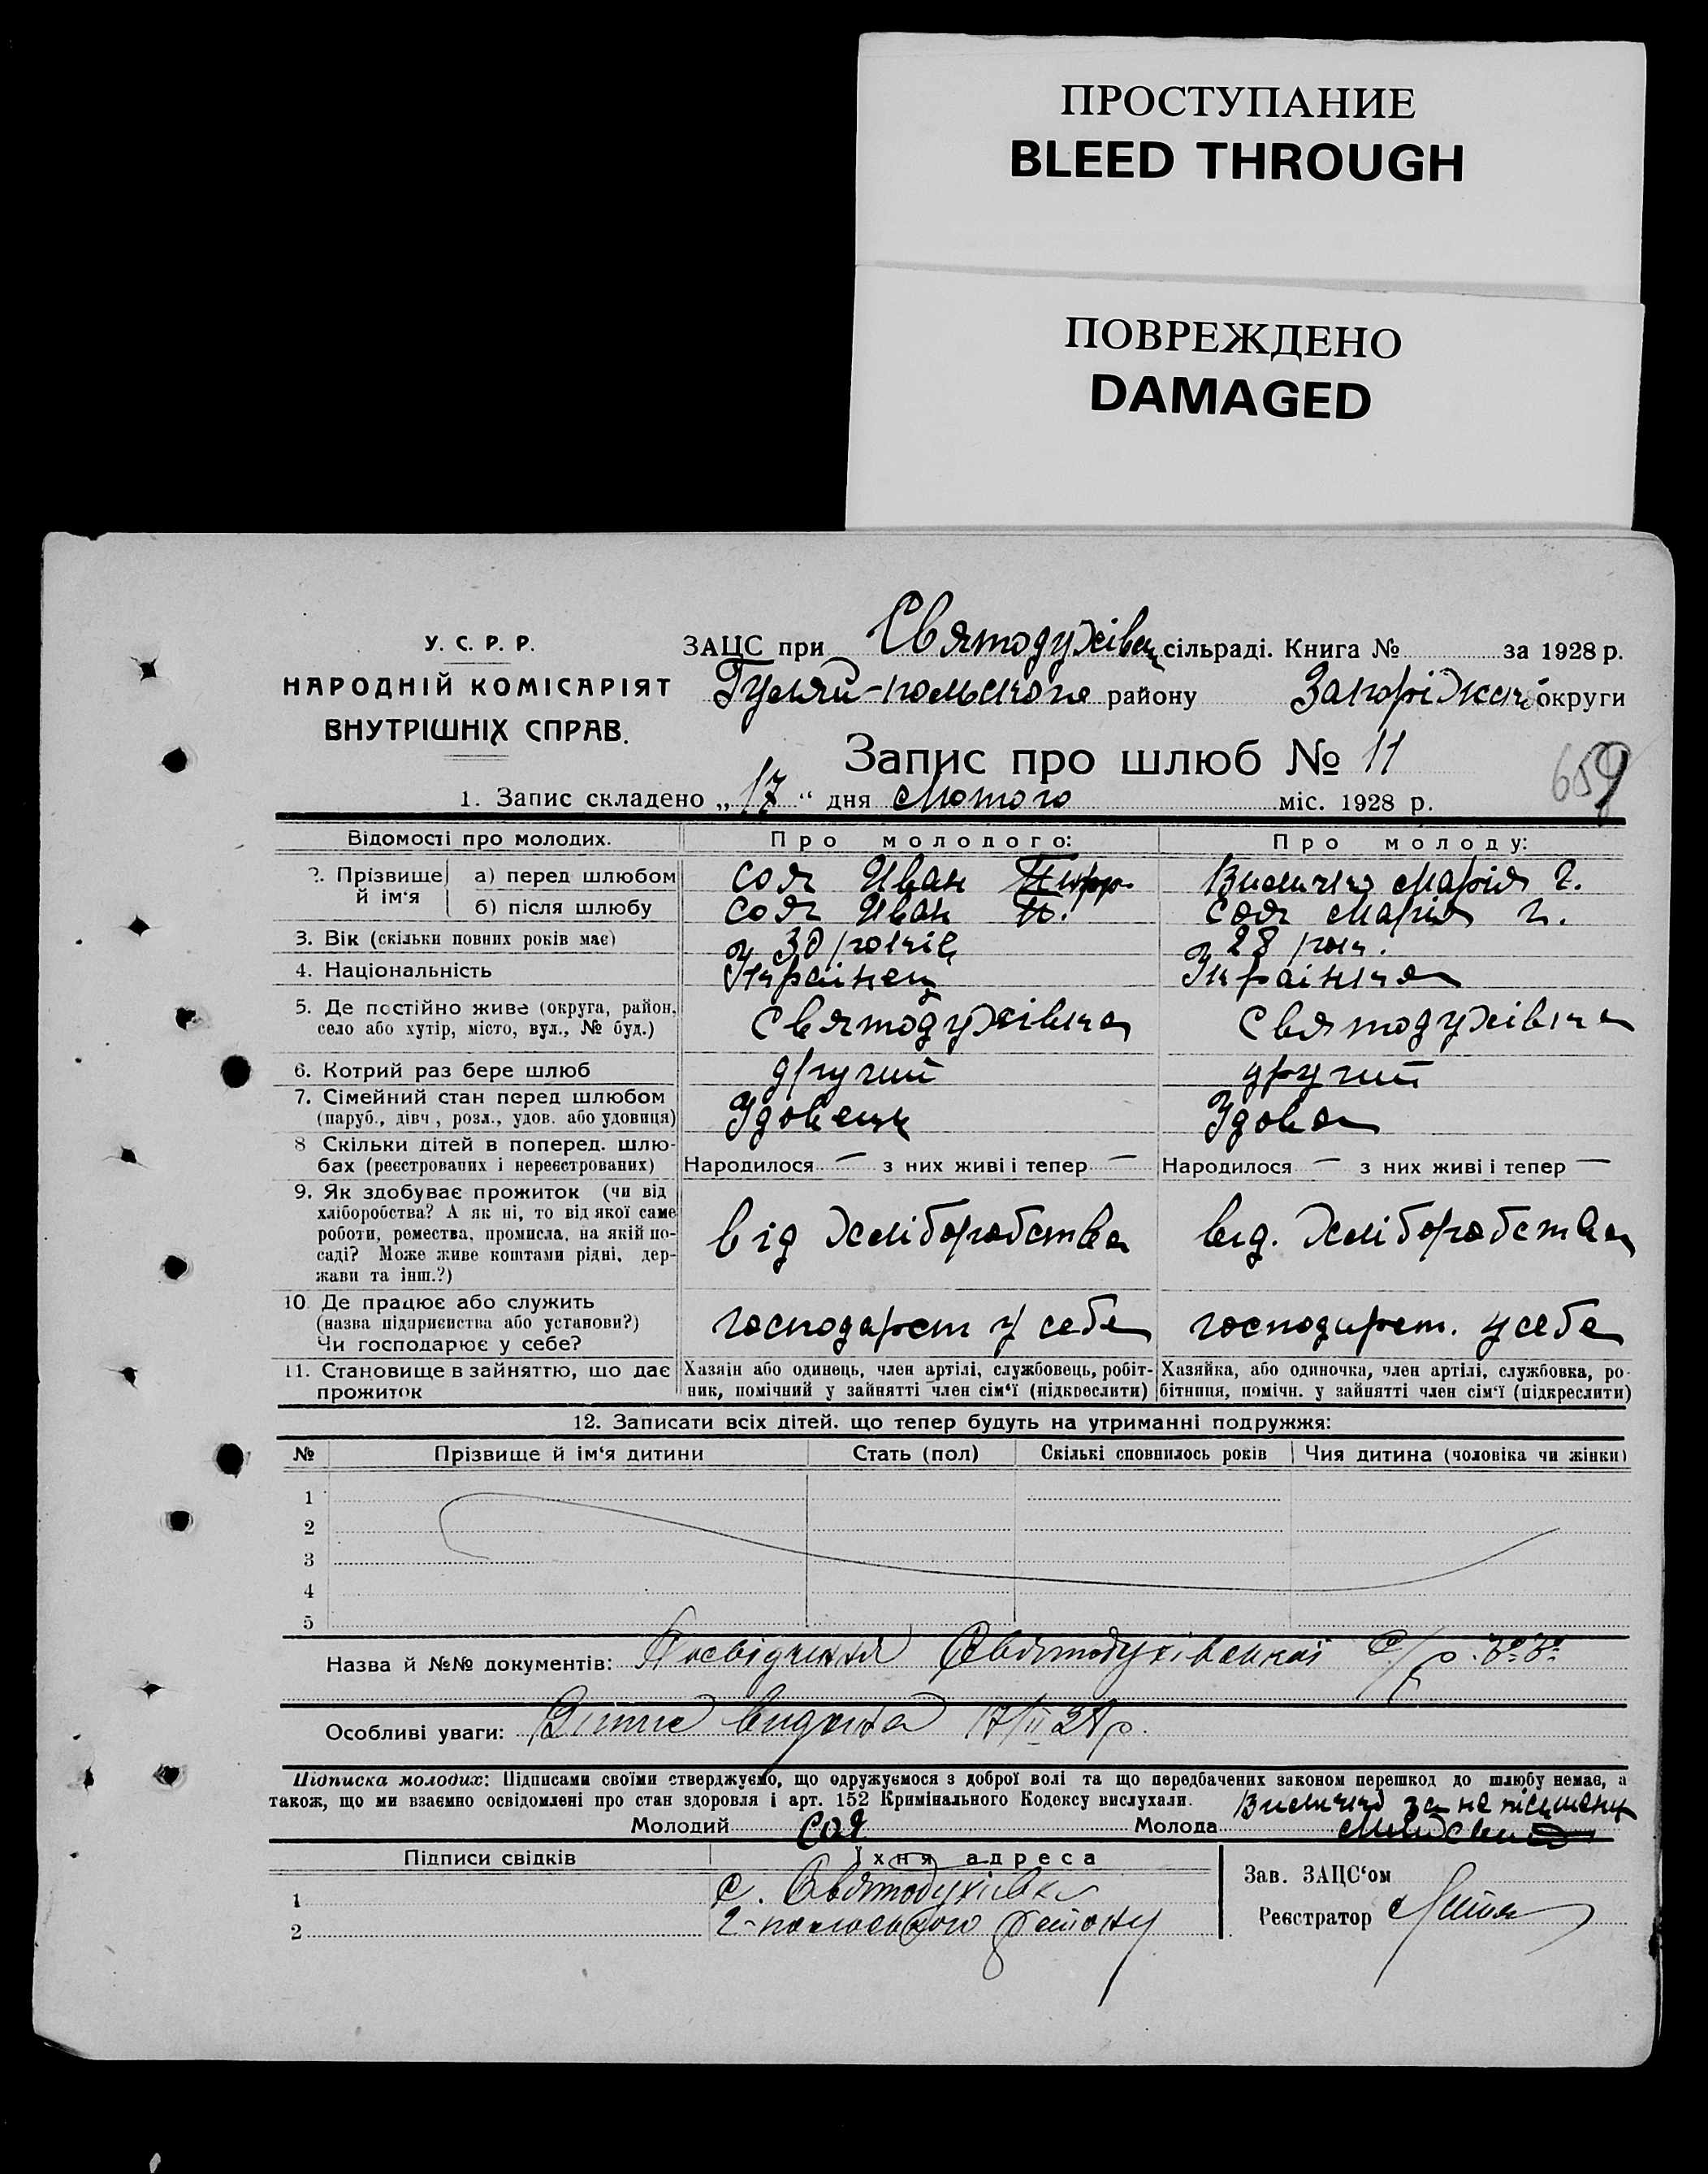 ПРОСТУПАНИЕ
BLEED THROUGH
ПОВРЕЖДЕНО
DAMAGED
У. С. Р. Р.
НАРОДНІЙ КОМІСАРІЯТ
ВНУТРІШНІХ СПРАВ.
ЗАЦС при Святодухівец сільраді. Книга № за 1928 р.
Гуляй-польского району Запоріжськ округи
Запис про шлюб № 11
659
1. Запис складено „17“ дня Лютого міс. 1928 р.
Відомості про молодих. Про молодого: Про молоду:
2. Прізвище й ім'я а) перед шлюбом Соя Иван Марія Г.
б) після шлюбу Соя Иван П. Соя Марія Г.
3. Вік (скільки повних років має) 30 років 28 рок.
4. Національність Українец Українка
5. Де постійно живе (округа, район, село або хутір, місто, вул., № буд.) Святодухівка Святодухівка
6. Котрий раз бере шлюб другий другий
7. Сімейний стан перед шлюбом (паруб., дівч., розл., удов. або удовиця) Удовець Удова
8 Скільки дітей в поперед. шлюбах (реєстрованих і нереєстрованих) Народилося — з них живі і тепер — Народилося — з них живі і тепер —
9. Як здобуває прожиток (чи від хліборобства? А як ні, то від якої саме роботи, ремества, промисла, на якій посаді? Може живе коштами рідні, держави та інш.?) від Хліборобства від. Хліборобства
10 Де працює або служить (назва підприєнства або установи?) Чи господарює у себе? господарст у себе господарст. у себе
11. Становище в зайняттю, що дає прожиток Хазяїн або одинець, член артілі, службовець, робітник, помічний у зайнятті член сім'ї (підкреслити) Хазяйка, або одиночка, член артілі, службовка, робітниця, помічн. у зайнятті член сім'ї (підкреслити)
12. Записати всіх дітей. що тепер будуть на утриманні подружжя:
№ Прізвище й ім'я дитини Стать (пол) Скількі сповнилось років Чия дитина (чоловіка чи жінки)
1
2
3
4
5
Назва й №№ документів: Посвідчення Святодухівської с/р.
Особливі уваги: видана 17/II 28 р.
Підписка молодих: Підписами своїми стверджуємо, що одружуємося з доброї волі та що передбачених законом перешкод до шлюбу немає, а
також, що ми взаємно освідомлені про стан здоровля і арт. 152 Кримінального Кодексу вислухали. за не письмену
Молодий Соя Молода
Підписи свідків Їхня адреса
1 с. Святодухівка
2 Г-польского району
Зав. ЗАЦС'ом
Реєстратор